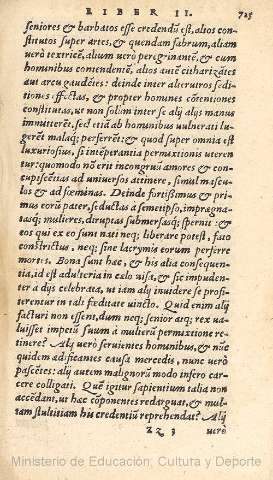 LIBER II. 725
seniores & barbatos esse credendũ est, alios con-
stitutos super artes, & quendam fabrum, aliam
verò textricẽ, alium verò peregrinantẽ, & cum
hominibus contendentẽ, alios autẽ citharizãtes
aut arcu gaudẽtes: deinde inter alterutros sedi-
tiones effectas, & propter homines cõtentiones
constitutas, ut non solùm inter se alij alijs manus
immitterẽt, sed etiã ab hominibus vulnerati lu-
gerẽt malaq́; perferrent: & quod super omnia est
luxuriosius, si intẽperantia permixtionis uteren
tur: quomodo nõ erit incongruũ amores & con-
cupiscẽtias ad universos attinere, simul mascu-
los & ad fœminas. Deinde fortissimus & pri-
mus eorũ pater, seductas à semetipso, imprægna-
tasq́; mulieres, diruptas submersasq́; spernit: &
eos qui ex eo sunt nati neq; liberare potest, fato
constrictus, neq; sine lacrymis eorum perferre
mortes. Bona sunt hæc, & his alia consequen-
tia, id est adulteria in cælo visa, & sic impuden-
ter à dijs celebrata, ut iam alij inuidere se profi-
terentur in tali fœditate vincto. Quid enim alij
facturi non essent, dum neq; senior atq; rex va-
luisset impetũ suum à mulierũ permixtione re-
tinere? Alij verò seruientes hominibus, & nũc
quidem ædificantes causa mercedis, nunc verò
pascẽtes: alij autem malignorũ modo infero car-
cere colligati. Quẽ igitur sapientium talia non
accẽdant, ut hæc cõponentes redarguat, & mul-
tam stultitiam his credentiũ reprehendat? Alij
ZZ 3 verò
Ministerio de Educación, Cultura y Deporte